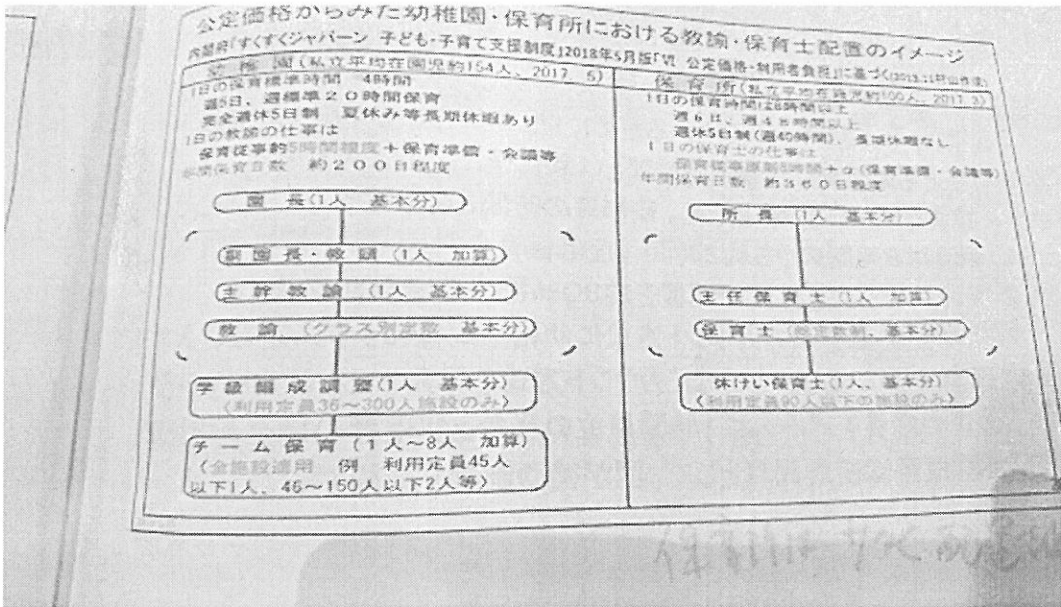 公定価格からみた幼稚園・保育所における教諭・保育士配置のイメージ
内閣府「すくすくジャパーン 子ども・子育て支援制度」2018年5月版「Ⅵ 公定価格・利用者負担」に基づく
幼稚園(私立平均在園児約154人、2017.5)
1日の保育標準時間 4時間
週5日、週標準20時間保育
完全週休5日制 夏休み等長期休暇あり
1日の教諭の仕事は
保育従事約5時間程度+保育準備・会議等
年間保育日数 約200日程度
園長(1人 基本分)
副園長・教頭(1人 加算)
主幹教諭(1人 基本分)
教諭(クラス別定数 基本分)
学級編成調整(1人 基本分)
(利用定員36~300人施設のみ)
チーム保育(1人~8人 加算)
(全施設適用 例 利用定員45人
以下1人、46~150人以下2人等)
保育所(私立平均在籍児約100人、2017.3)
1日の保育時間は8時間以上
週6日、週48時間以上
週休5日制(週40時間)、長期休暇なし
1日の保育士の仕事は
保育従事原則8時間+α(保育準備・会議等)
年間保育日数 約360日程度
所長(1人 基本分)
主任保育士(1人 加算)
保育士(総定数制、基本分)
休けい保育士(1人、基本分)
(利用定員90人以下の施設のみ)